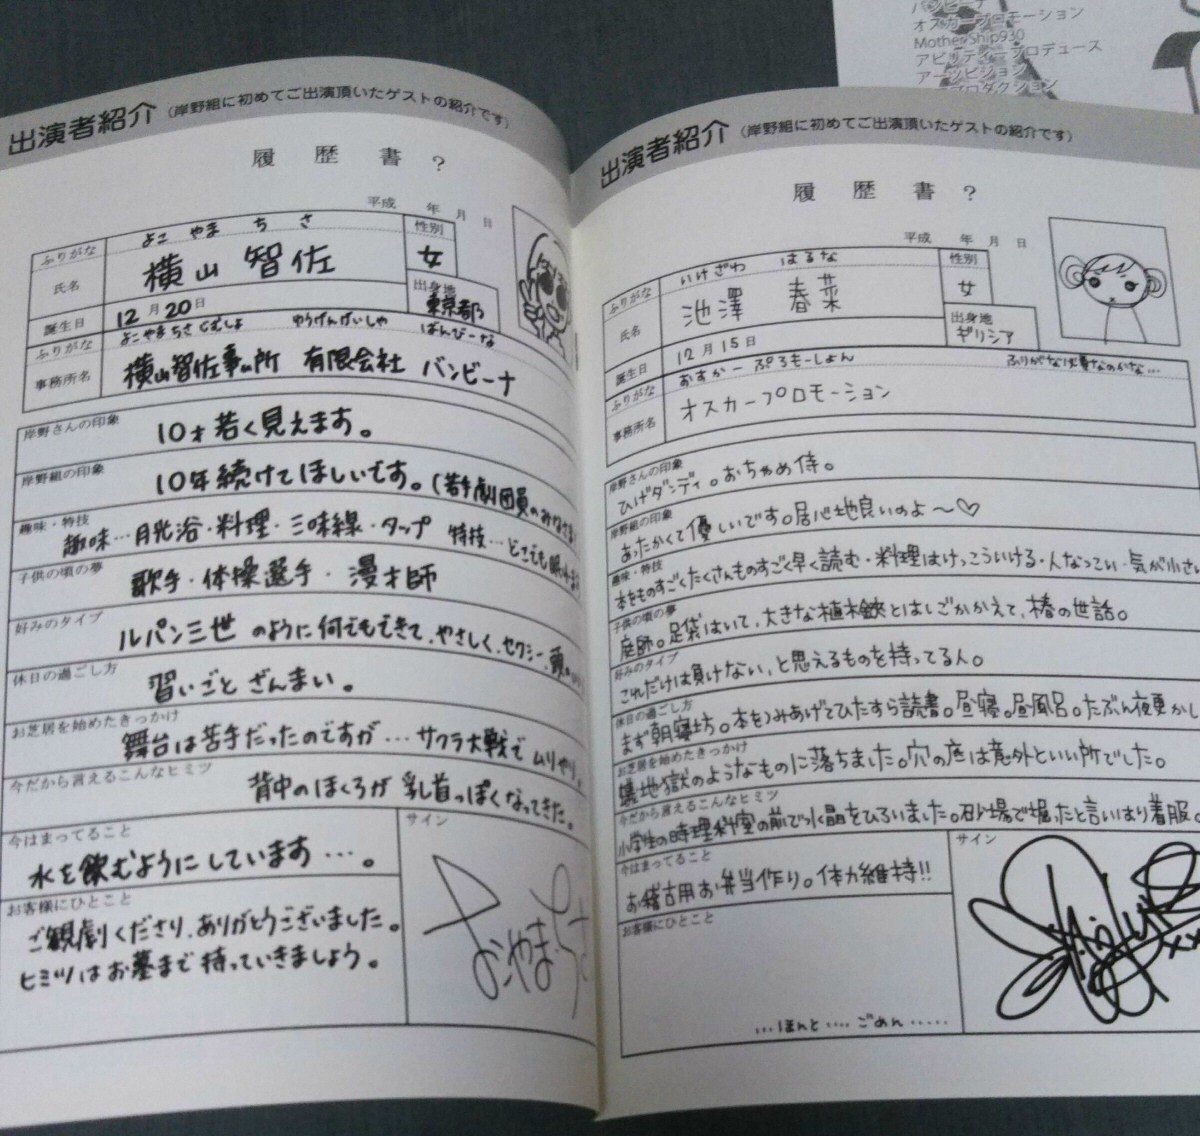 オスカープロモーション
MotherShip930
アビリティープロデュース
アーツビジョン
プロダクション
出演者紹介（岸野組に初めてご出演頂いたゲストの紹介です）
履歴書？
平成 年 月 日
ふりがな よこ やま ち さ
氏名 横山 智佐
性別 女
誕生日 12月20日
出身地 東京都
ふりがな よこやまちさじむしょ ゆうげんがいしゃ ばんびーな
事務所名 横山智佐事ム所 有限会社 バンビーナ
岸野さんの印象 10才若く見えます。
岸野組の印象 10年続けてほしいです。(若手劇団員のみなさま)
趣味・特技 趣味…月光浴・料理・三味線・タップ 特技…どこでも眠れます
子供の頃の夢 歌手・体操選手・漫才師
好みのタイプ ルパン三世のように何でもできて、やさしく、セクシー、頭の
休日の過ごし方 習いごとざんまい。
お芝居を始めたきっかけ 舞台は苦手だったのですが…サクラ大戦でムリやり。
今だから言えるこんなヒミツ 背中のほくろが乳首っぽくなってきた。
今はまってること 水を飲むようにしています…。
お客様にひとこと ご観劇くださり、ありがとうございました。
ヒミツはお墓まで持っていきましょう。
サイン
よこやまちさ
出演者紹介（岸野組に初めてご出演頂いたゲストの紹介です）
履歴書？
平成 年 月 日
ふりがな いけざわ はるな
氏名 池澤 春菜
性別 女
誕生日 12月15日
出身地 ギリシア
ふりがな おすかー ぷろもーしょん ふりがな必要なのかな…
事務所名 オスカープロモーション
岸野さんの印象 ひげダンディ。おちゃめ侍。
岸野組の印象 あったかくて優しいです。居心地良いのよ〜♡
趣味・特技 本をものすごくたくさんものすごく早く読む・料理はけっこういける・人なつっこい・気が小さい
子供の頃の夢 庭師。足袋はいて、大きな植木鋏とはしごかかえて、椿の世話。
好みのタイプ これだけは負けない、と思えるものを持ってる人。
休日の過ごし方 まず朝寝坊。本をつみあげてひたすら読書。昼寝。昼風呂。たぶん夜更かし
お芝居を始めたきっかけ 蟻地獄のようなものに落ちました。穴の底は意外といい所でした。
今だから言えるこんなヒミツ 小学生の時理科室の前で水晶をひろいました。砂場で掘ったと言いはり着服。
今はまってること お稽古用お弁当作り。体力維持!!
お客様にひとこと
…ほんと‥‥ごめん‥‥‥
サイン